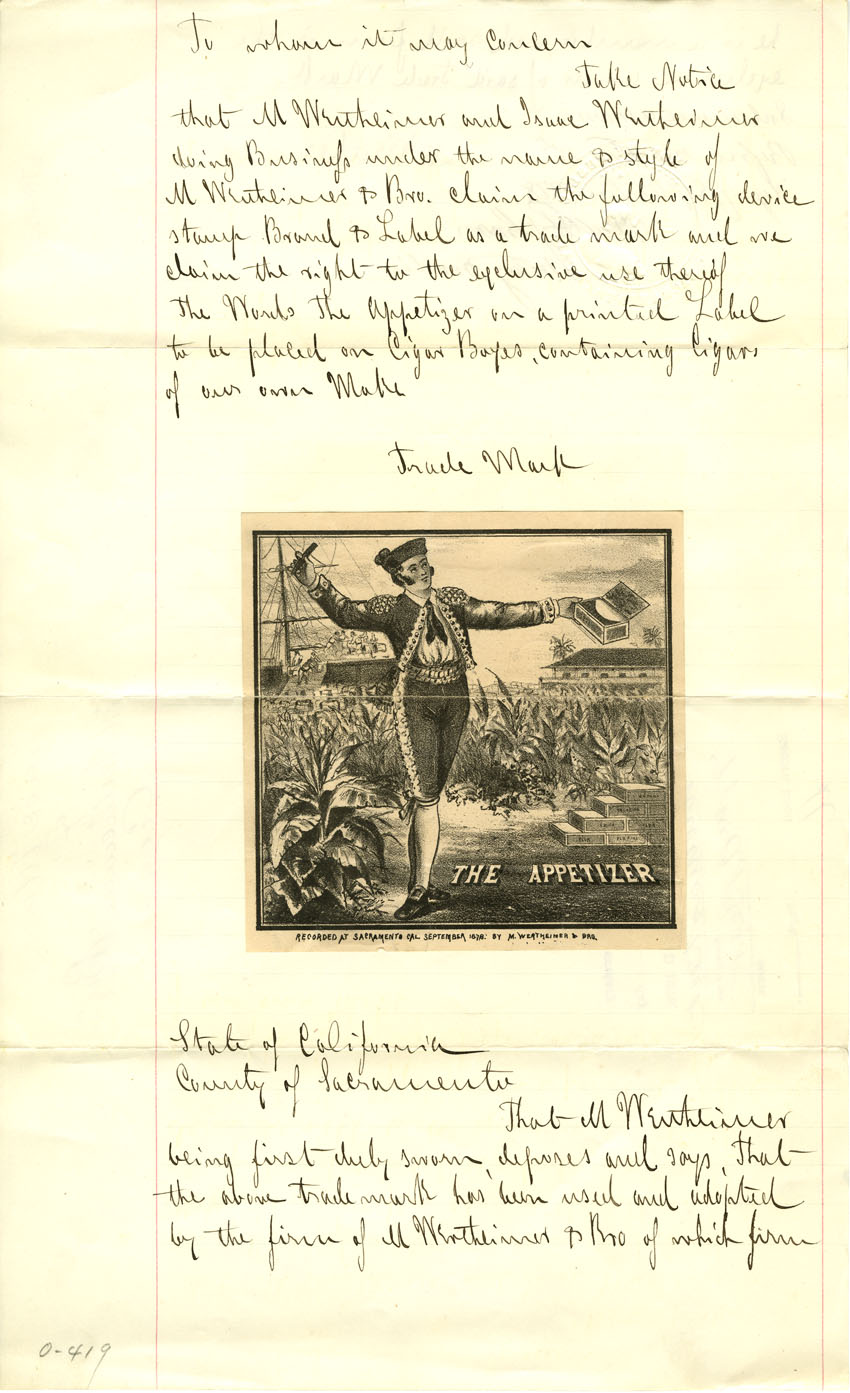 To whom it may Concern
Take Notice
that M Wertheimer and Isaac Wertheimer
doing Business under the name & style of
M Wertheimer & Bro. claim the following device
stamp Brand & Label as a trade mark and we
claim the right to the exclusive use thereof
The Words The Appetizer on a printed Label
to be placed on Cigar Boxes, containing Cigars
of our own Make
Trade Mark
THE APPETIZER
RECORDED AT SACRAMENTO CAL. SEPTEMBER 1878. BY M. WERTHEIMER & BRO.
State of California
County of Sacramento
That M Wertheimer
being first duly sworn, deposes and says, That
the above trade mark has been used and adopted
by the firm of M Wertheimer & Bro of which firm
0-419